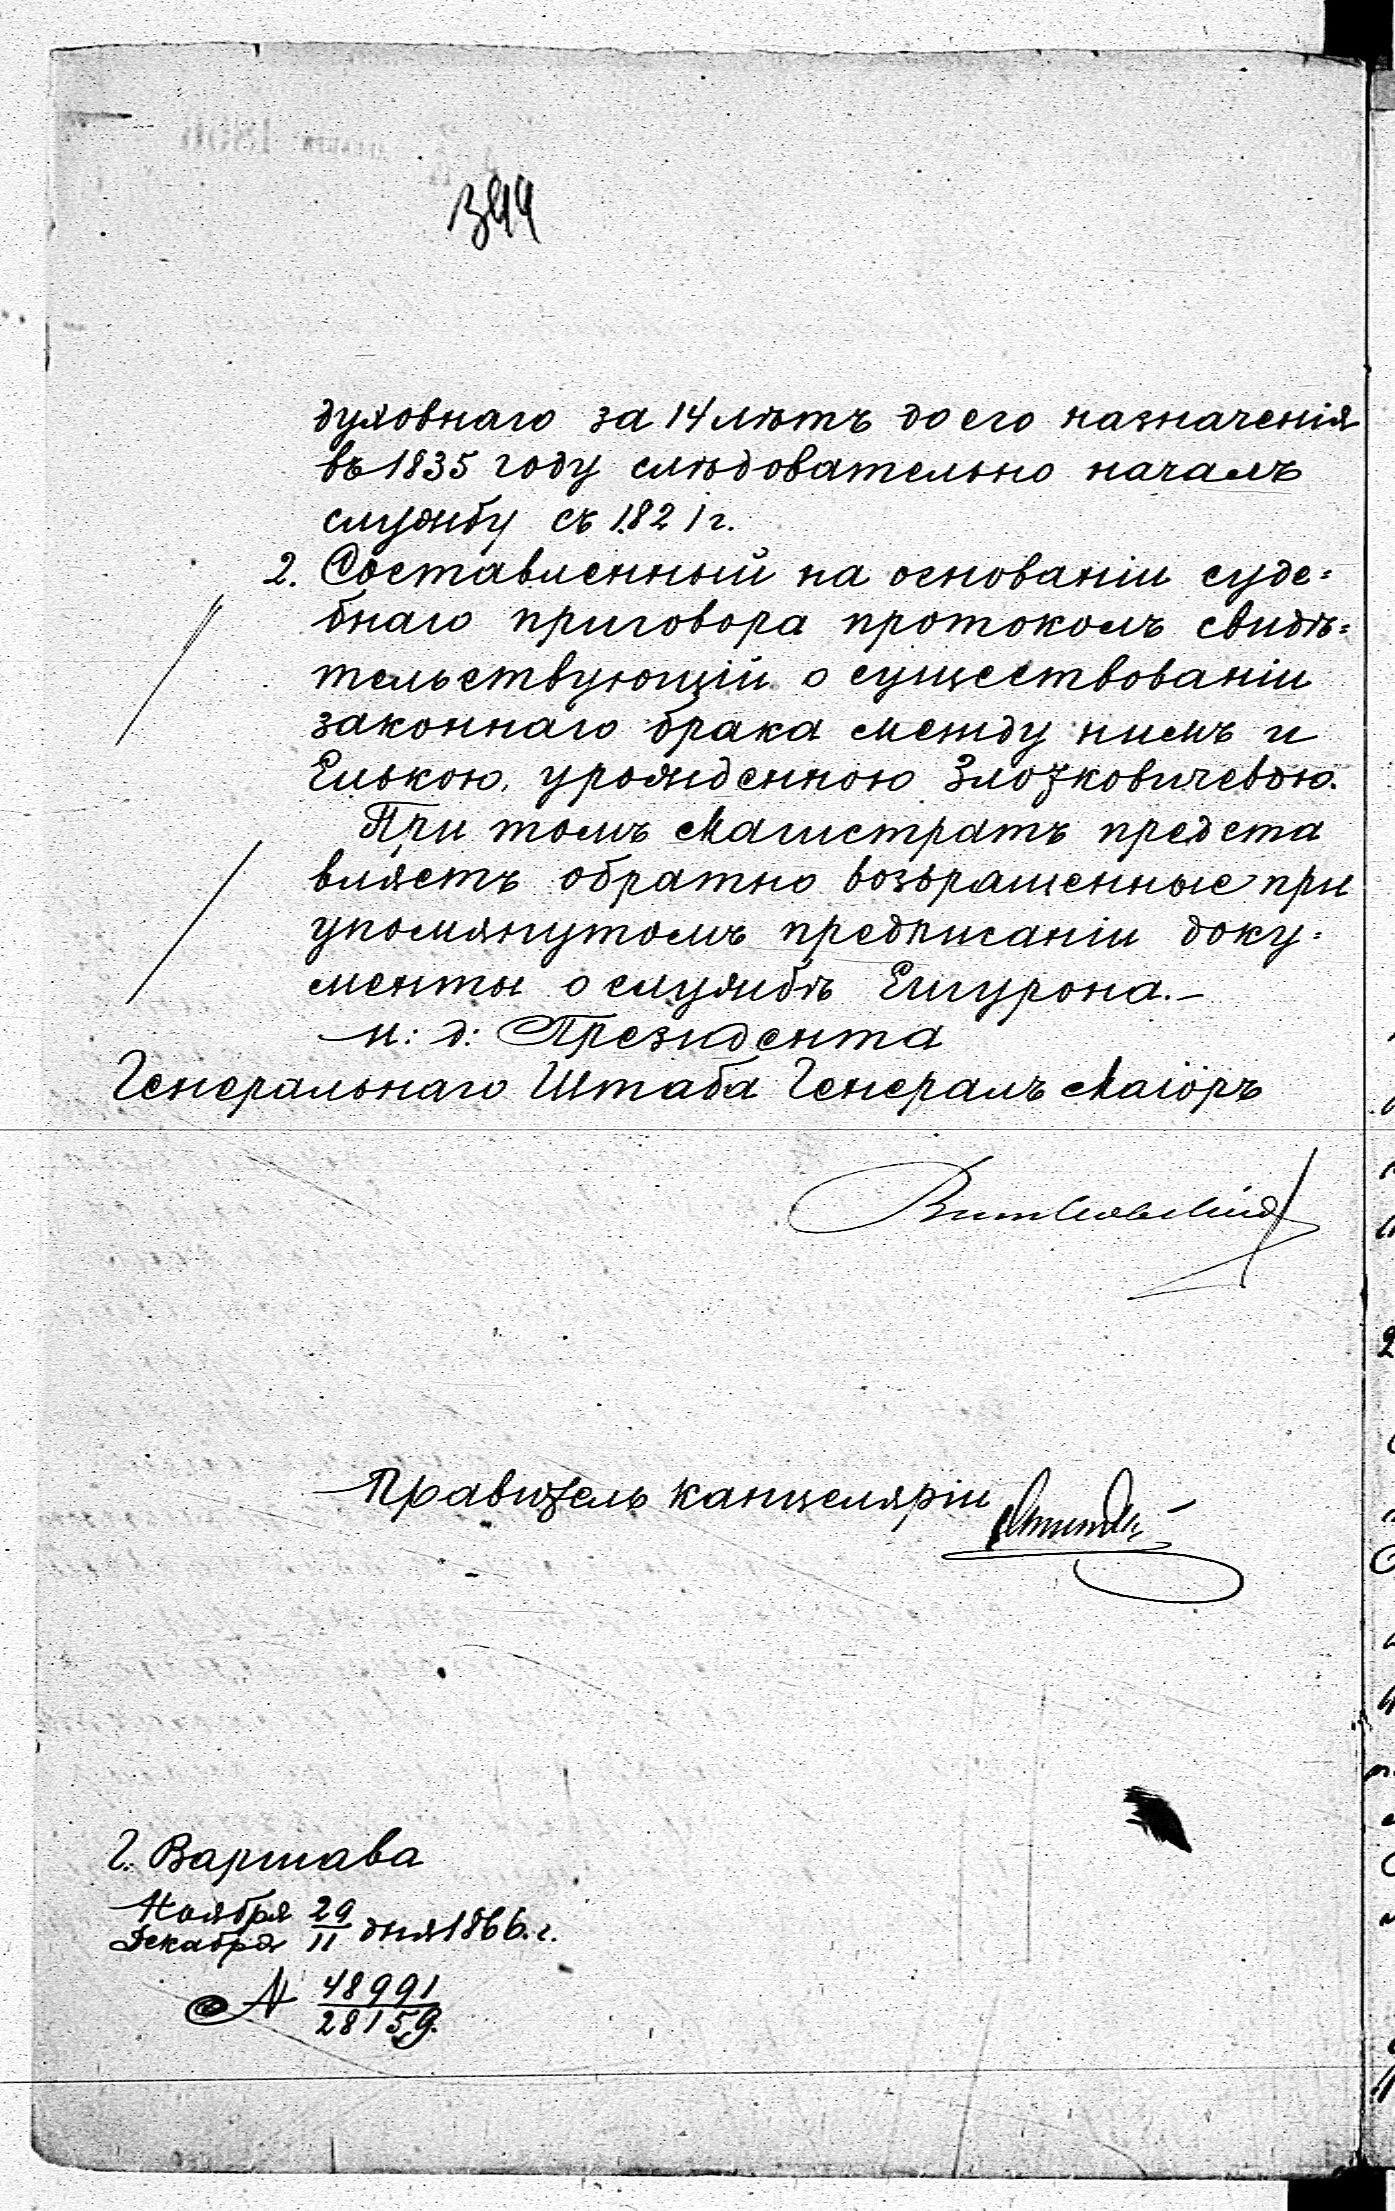 344
духовнаго за 14 лѣтъ до его назначенія
въ 1835 году слѣдовательно началъ
службу съ 1821 г.
2. Составленный на основаніи суде=
бнаго приговора протоколъ свидѣ=
тельствующій о существованіи
законнаго брака между нимъ и
Елькою, урожденною Злотковичевою.
При томъ Магистратъ предста
вляетъ обратно возвращенные при
упомянутомъ предписаніи доку=
менты о службѣ Ешурона.—
И: д: Президента
Генеральнаго Штаба Генералъ Маіоръ
Витковскій
Правитель канцеляріи
Г. Варшава
Ноября 29
Декабря 11 дня 1866 г.
№ 48991
28159.